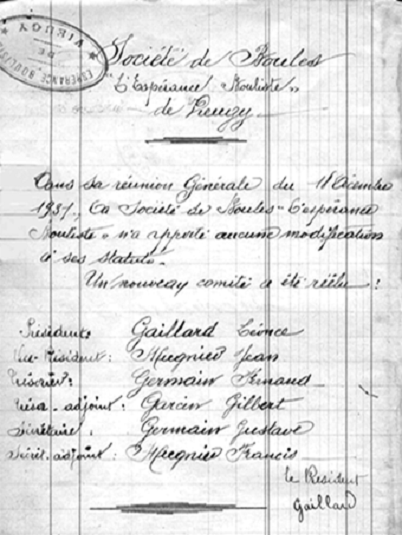 ESPÉRANCE BOULISTE
DE
VIEUGY
Société de Boules
"L'Espérance Bouliste"
de Vieugy
Dans sa réunion Générale du 18 Décembre
1937, la Société de Boules "L'espérance
Bouliste" n'a apporté aucune modification
à ses statuts.
Un nouveau comité a été réélu :
Président : Gaillard Léonce
Vice-Président : Mugnier Jean
Trésorier : Germain Fernand
Trés. adjoint : Garcin Gilbert
Secrétaire : Germain Gustave
Secrét. adjoint : Mugnier Francis
Le Président
Gaillard